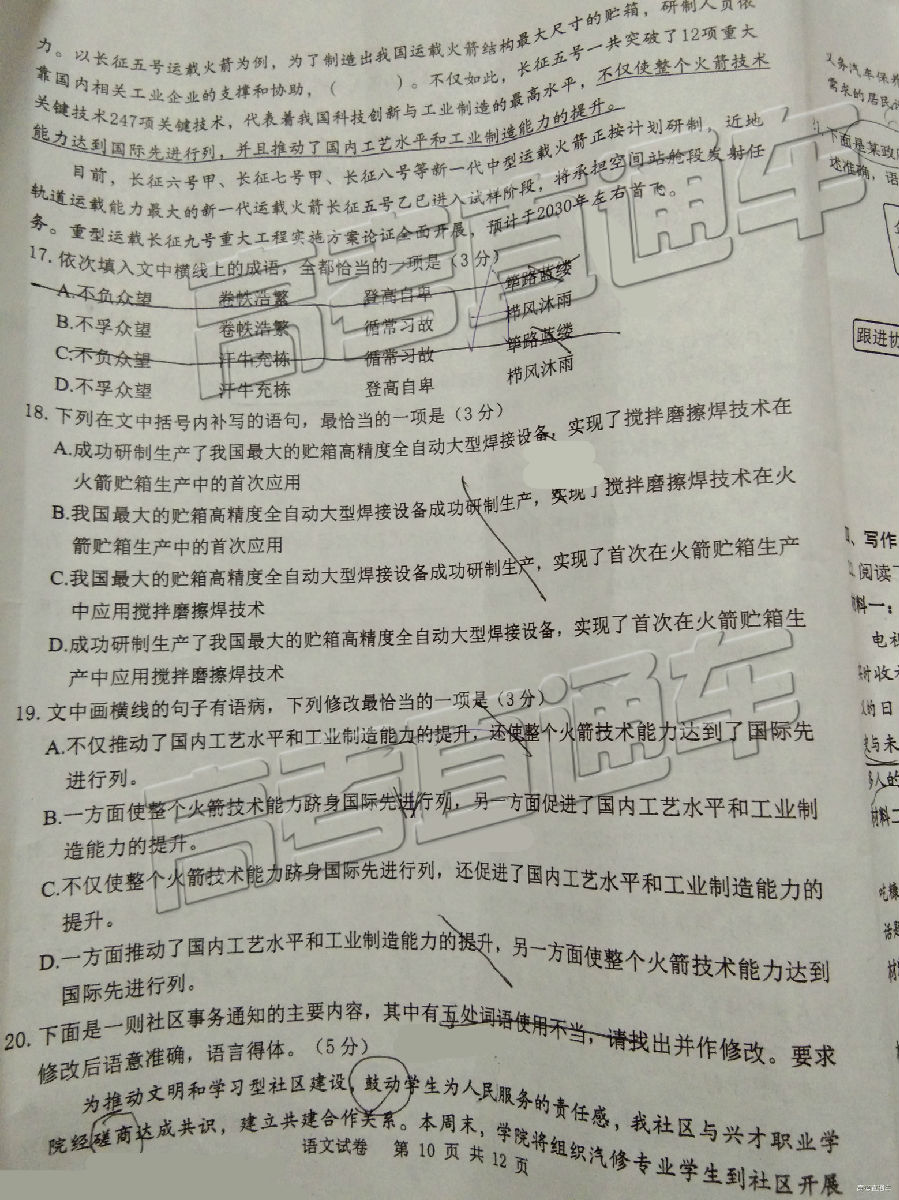 力。以长征五号运载火箭为例，为了制造出我国运载火箭结构最大尺寸的贮箱，研制人员依
靠国内相关工业企业的支撑和协助，（　　）。不仅如此，长征五号一共突破了12项重大
关键技术247项关键技术，代表着我国科技创新与工业制造的最高水平，不仅使整个火箭技术
能力达到国际先进行列，并且推动了国内工艺水平和工业制造能力的提升。
目前，长征六号甲、长征七号甲、长征八号等新一代中型运载火箭正按计划研制，近地
轨道运载能力最大的新一代运载火箭长征五号乙已进入试样阶段，将承担空间站舱段发射任
务。重型运载长征九号重大工程实施方案论证全面开展，预计于2030年左右首飞。
17. 依次填入文中横线上的成语，全都恰当的一项是（3分）
A.不负众望 卷帙浩繁 登高自卑 筚路蓝缕
B.不孚众望 卷帙浩繁 循常习故 栉风沐雨
C.不负众望 汗牛充栋 循常习故 筚路蓝缕
D.不孚众望 汗牛充栋 登高自卑 栉风沐雨
18. 下列在文中括号内补写的语句，最恰当的一项是（3分）
A.成功研制生产了我国最大的贮箱高精度全自动大型焊接设备，实现了搅拌磨擦焊技术在
火箭贮箱生产中的首次应用
B.我国最大的贮箱高精度全自动大型焊接设备成功研制生产，实现了搅拌磨擦焊技术在火
箭贮箱生产中的首次应用
C.我国最大的贮箱高精度全自动大型焊接设备成功研制生产，实现了首次在火箭贮箱生产
中应用搅拌磨擦焊技术
D.成功研制生产了我国最大的贮箱高精度全自动大型焊接设备，实现了首次在火箭贮箱生
产中应用搅拌磨擦焊技术
19. 文中画横线的句子有语病，下列修改最恰当的一项是（3分）
A.不仅推动了国内工艺水平和工业制造能力的提升，还使整个火箭技术能力达到了国际先
进行列。
B.一方面使整个火箭技术能力跻身国际先进行列，另一方面促进了国内工艺水平和工业制
造能力的提升。
C.不仅使整个火箭技术能力跻身国际先进行列，还促进了国内工艺水平和工业制造能力的
提升。
D.一方面推动了国内工艺水平和工业制造能力的提升，另一方面使整个火箭技术能力达到
国际先进行列。
20. 下面是一则社区事务通知的主要内容，其中有五处词语使用不当，请找出并作修改。要求
修改后语意准确，语言得体。（5分）
为推动文明和学习型社区建设，鼓动学生为人民服务的责任感，我社区与兴才职业学
院经磋商达成共识，建立共建合作关系。本周末，学院将组织汽修专业学生到社区开展
语文试卷 第10页共12页
义务汽车保养
需求的居民
下面是某政
述准确，语
跟进协
、写作
阅读
材料一：
电视
时收
的日
与未
多人的
材料二
吃
话题
材
高考直通车
高考直通车